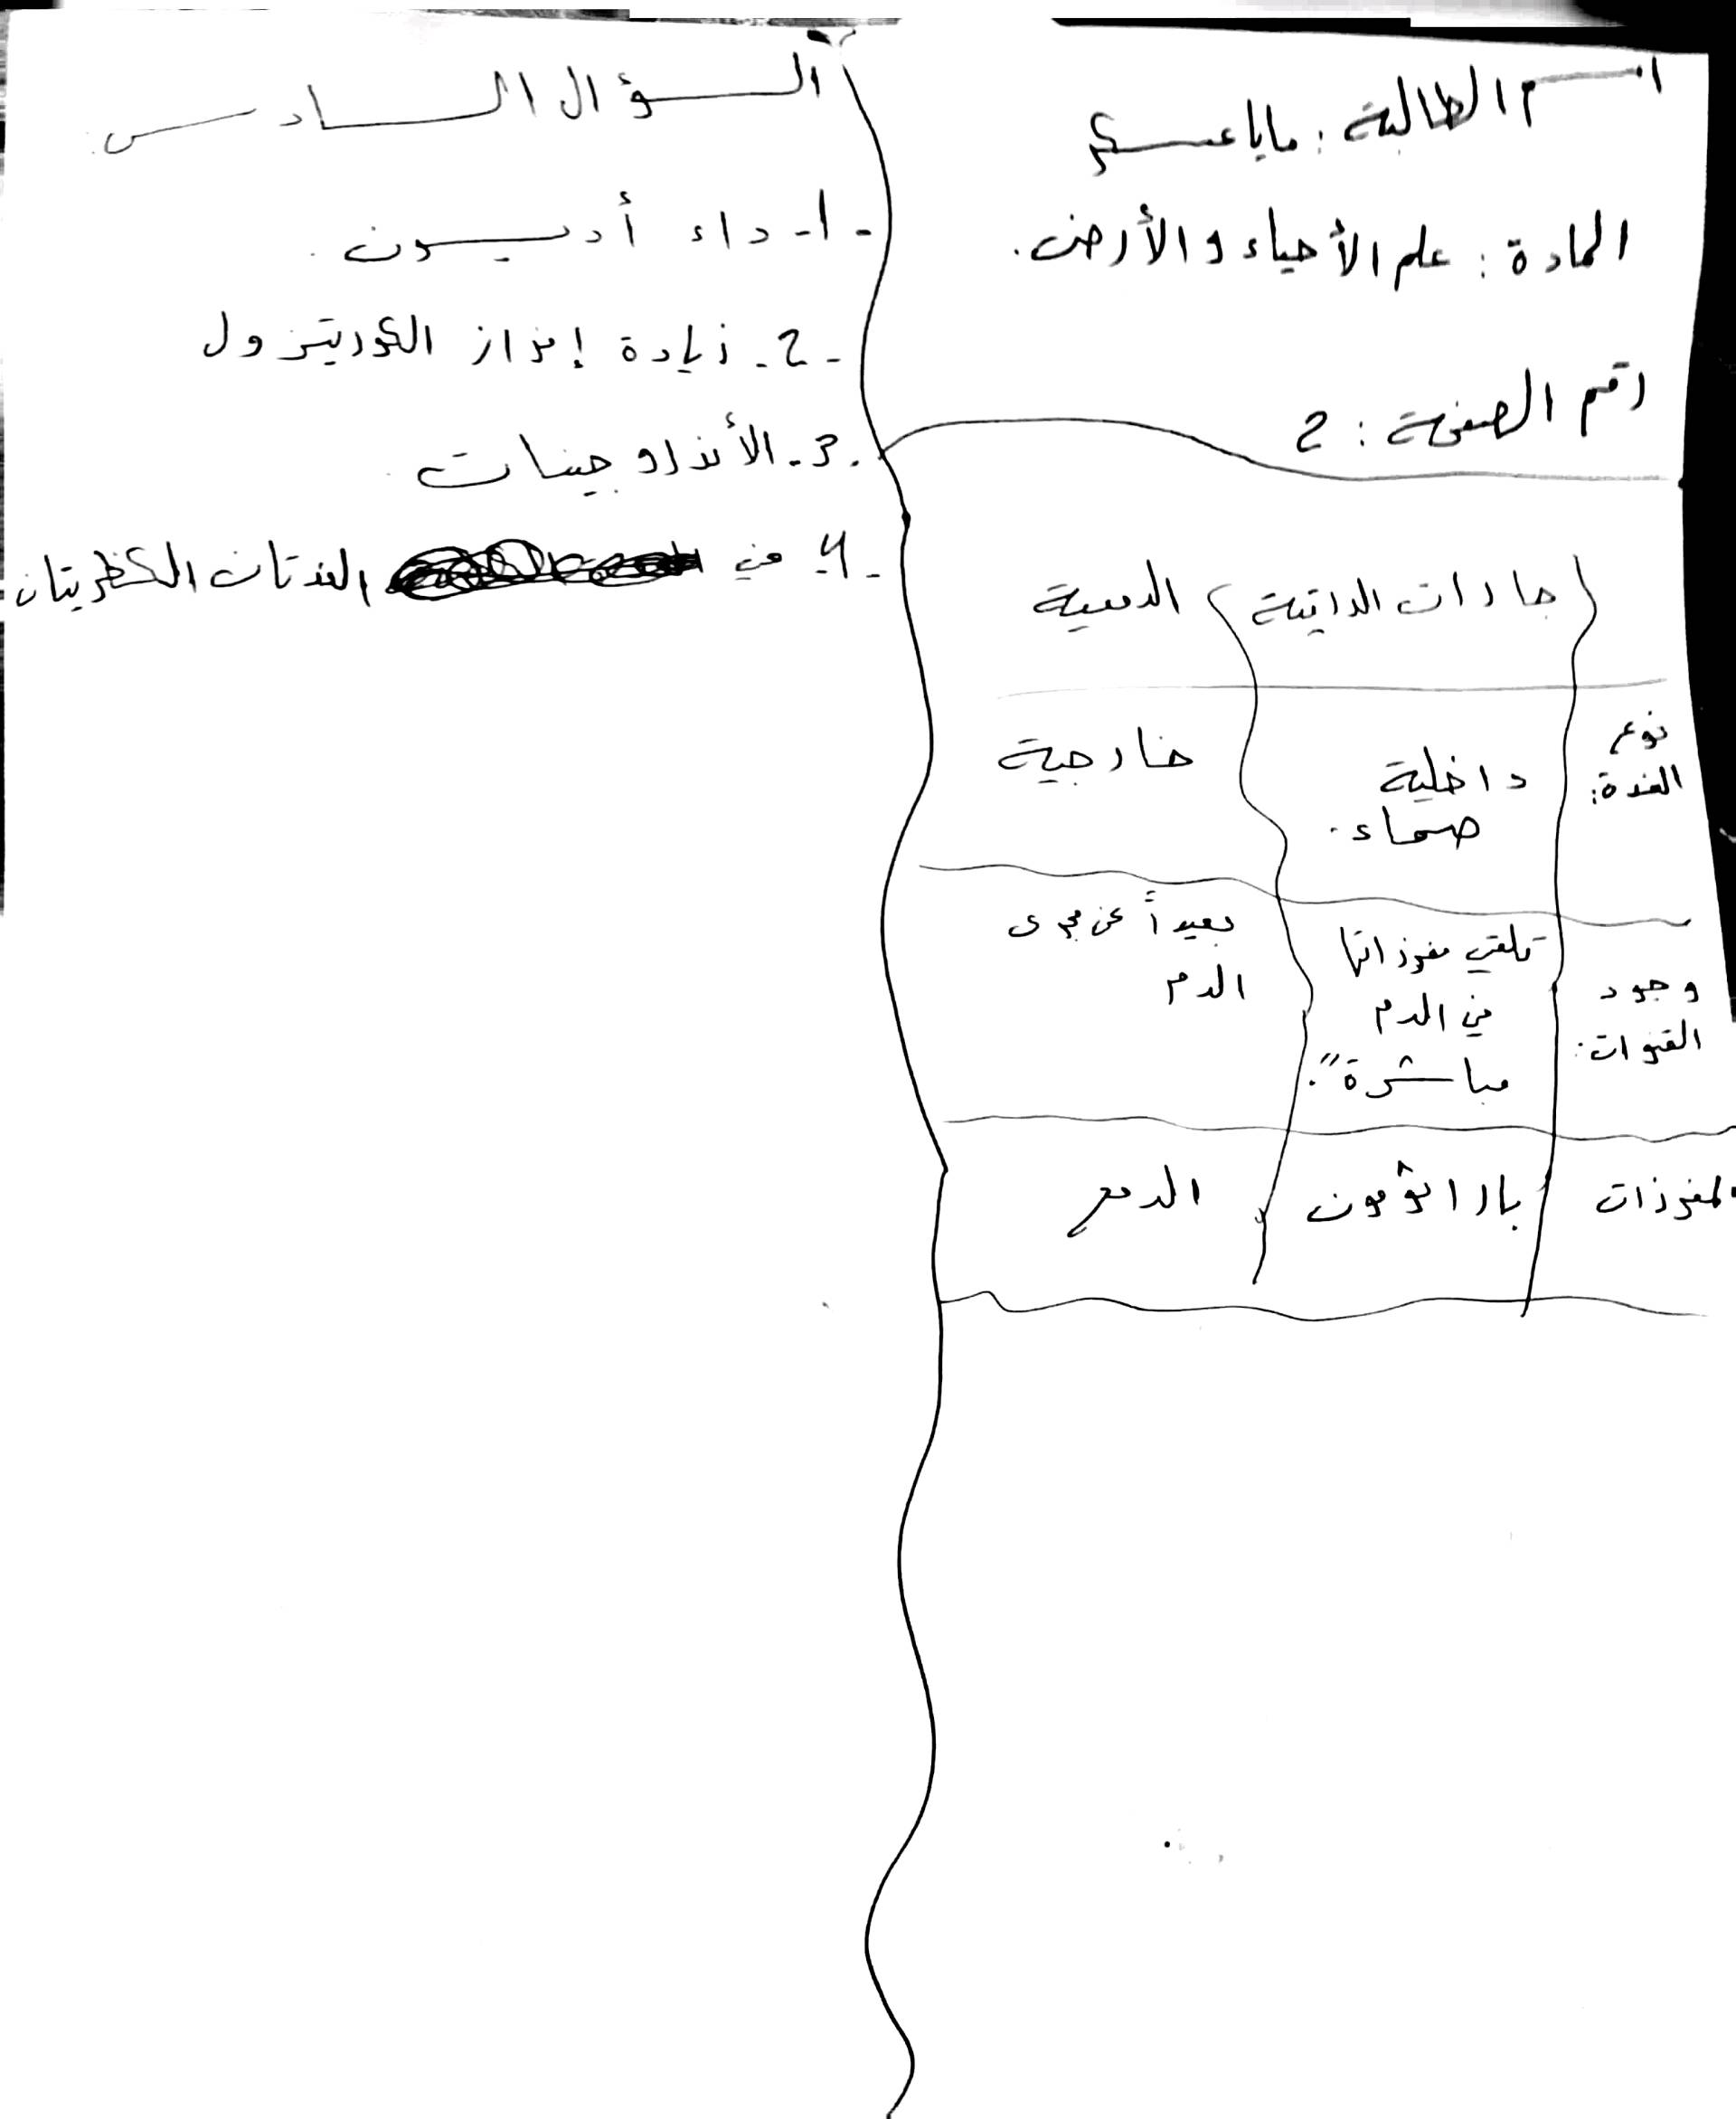 اسم الطالبة : مايا
المادة : علم الأحياء و الأرض.
رقم الصفحة : 2
جارات الدرقية الدمعية
نوع الغدة: داخلية صماء. خارجية
وجود القنوات: تلقي مفرزاتها في الدم مباشرةً. بعيداً عن مجرى الدم
المفرزات باراثومون الدمع
السؤال السادس:
-1- داء أديسون.
-2- زيادة إفراز الكوريتزول
-3- الأندروجينات.
-4- في الغدتان الكظريتان.